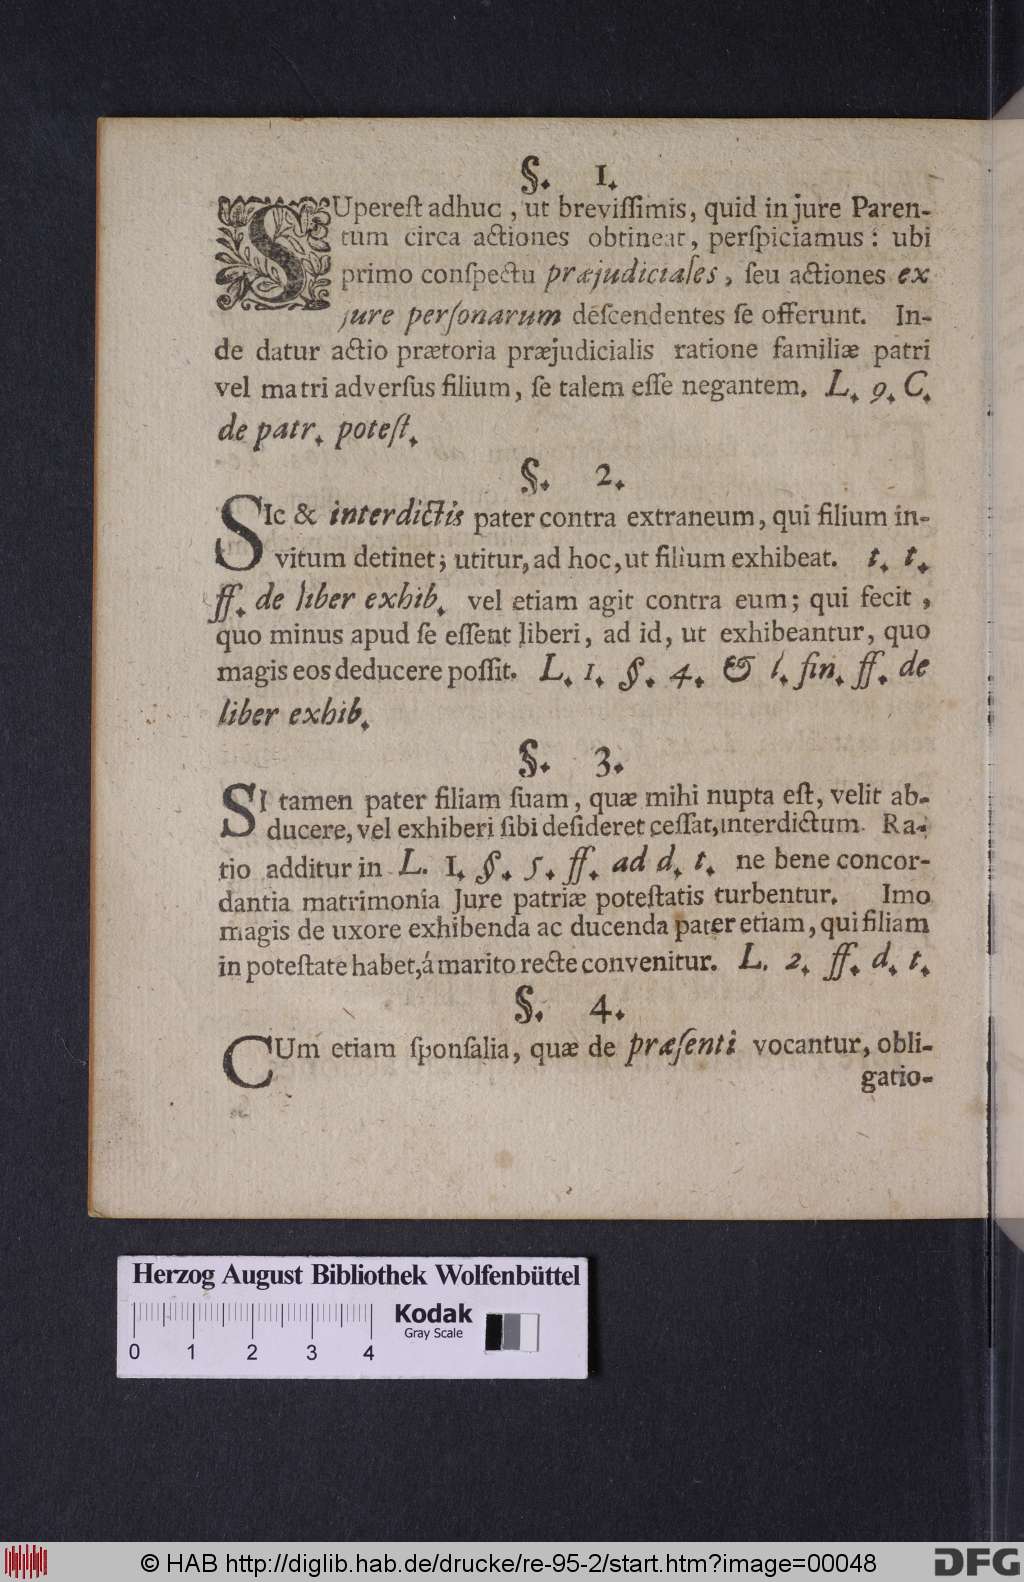 §. 1.
SUpereſt adhuc, ut breviſſimis, quid in jure Paren-
tum circa actiones obtineat, perſpiciamus: ubi
primo conſpectu præjudiciales, ſeu actiones ex
jure perſonarum deſcendentes ſe offerunt. In-
de datur actio prætoria præjudicialis ratione familiæ patri
vel matri adverſus filium, ſe talem eſſe negantem. L. 9. C.
de patr. poteſt.
§. 2.
SIc & interdictis pater contra extraneum, qui filium in-
vitum detinet; utitur, ad hoc, ut filium exhibeat. t. t.
ff. de liber exhib. vel etiam agit contra eum; qui fecit,
quo minus apud ſe eſſent liberi, ad id, ut exhibeantur, quo
magis eos deducere poſſit. L. 1. §. 4. & l. fin. ff. de
liber exhib.
§. 3.
SI tamen pater filiam ſuam, quæ mihi nupta eſt, velit ab-
ducere, vel exhiberi ſibi deſideret ceſſat, interdictum. Ra-
tio additur in L. 1. §. 5. ff. ad d. t. ne bene concor-
dantia matrimonia Jure patriæ poteſtatis turbentur. Imo
magis de uxore exhibenda ac ducenda pater etiam, qui filiam
in poteſtate habet, á marito recte convenitur. L. 2. ff. d. t.
§. 4.
CUm etiam ſponſalia, quæ de præſenti vocantur, obli-
gatio-
Herzog August Bibliothek Wolfenbüttel
Kodak
Gray Scale
0 1 2 3 4
© HAB http://diglib.hab.de/drucke/re-95-2/start.htm?image=00048
DFG